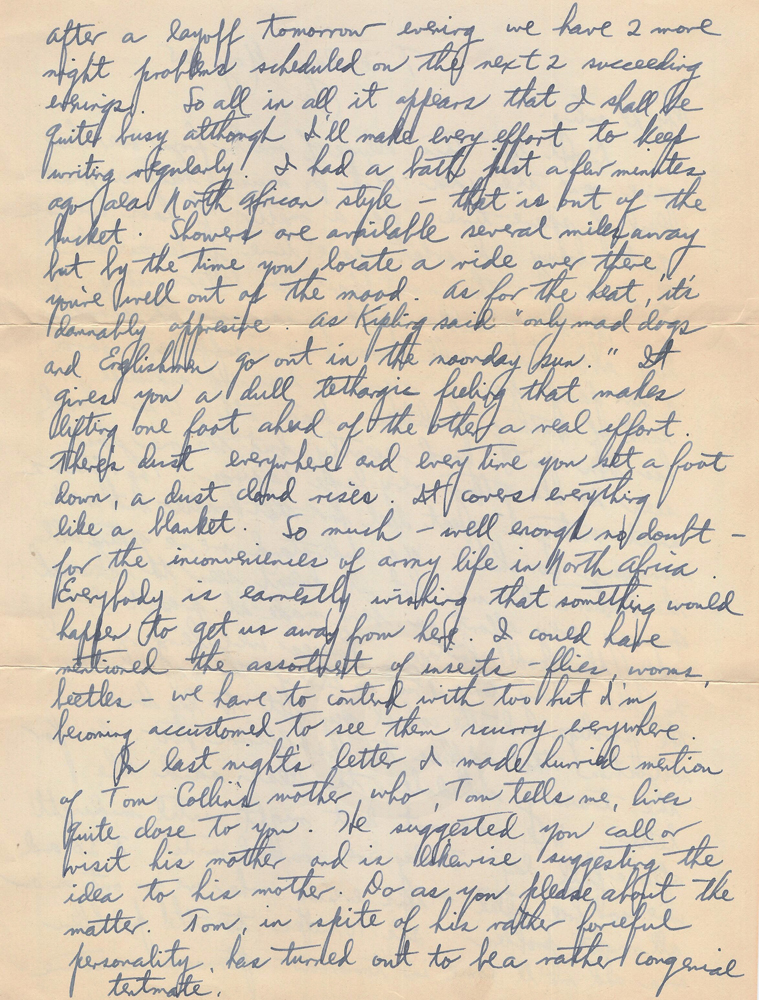 after a layoff tomorrow evening we have 2 more
night problems scheduled on the next 2 succeeding
evenings. So all in all it appears that I shall be
quite busy although I'll make every effort to keep
writing regularly. I had a bath just a few minutes
ago ala North African style - that is out of the
bucket. Showers are available several miles away
but by the time you locate a ride over there
you're well out of the mood. As for the heat, it's
damnably oppresive. As Kipling said "only mad dogs
and Englishmen go out in the noonday sun." It
gives you a dull lethargic feeling that makes
lifting one foot ahead of the other a real effort.
There's dust everywhere and every time you set a foot
down, a dust cloud rises. It covers everything
like a blanket. So much - well enough no doubt -
for the inconveniences of army life in North Africa.
Everybody is earnestly wishing that something would
happen to get us away from here. I could have
mentioned the assortment of insects - flies, worms,
beetles - we have to contend with too but I'm
becoming accustomed to see them scurry everywhere.
In last night's letter I made hurried mention
of Tom Collin's mother who, Tom tells me, lives
quite close to you. He suggested you call or
visit his mother and is likewise suggesting the
idea to his mother. Do as you please about the
matter. Tom, in spite of his rather forceful
personality, has turned out to be a rather congenial
tentmate.